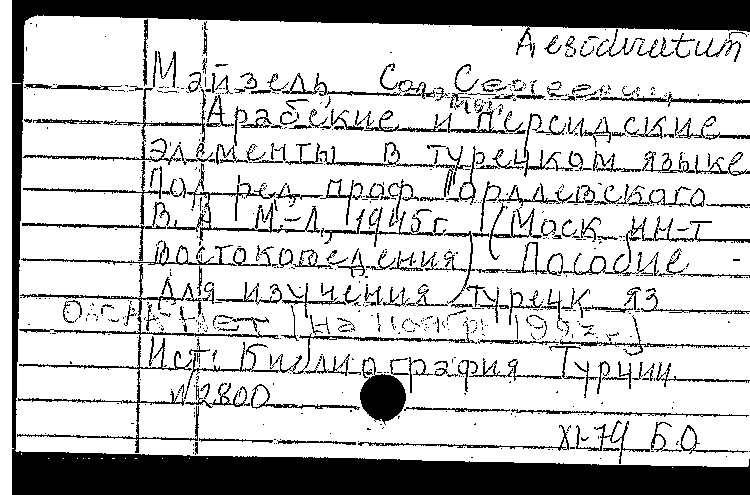 Desideratum
Майзель, Соломон Сергеевич,
Арабские и персидские
элементы в турецком языке
Под ред. проф Гордлевского
В. А М.-Л, 1945 г. (Моск ин-т
Востоковедения) Пособие -
для изучения турецк яз
нет [на ноябрь
Ист: Библиография Турции
№2800
XI-74 БО